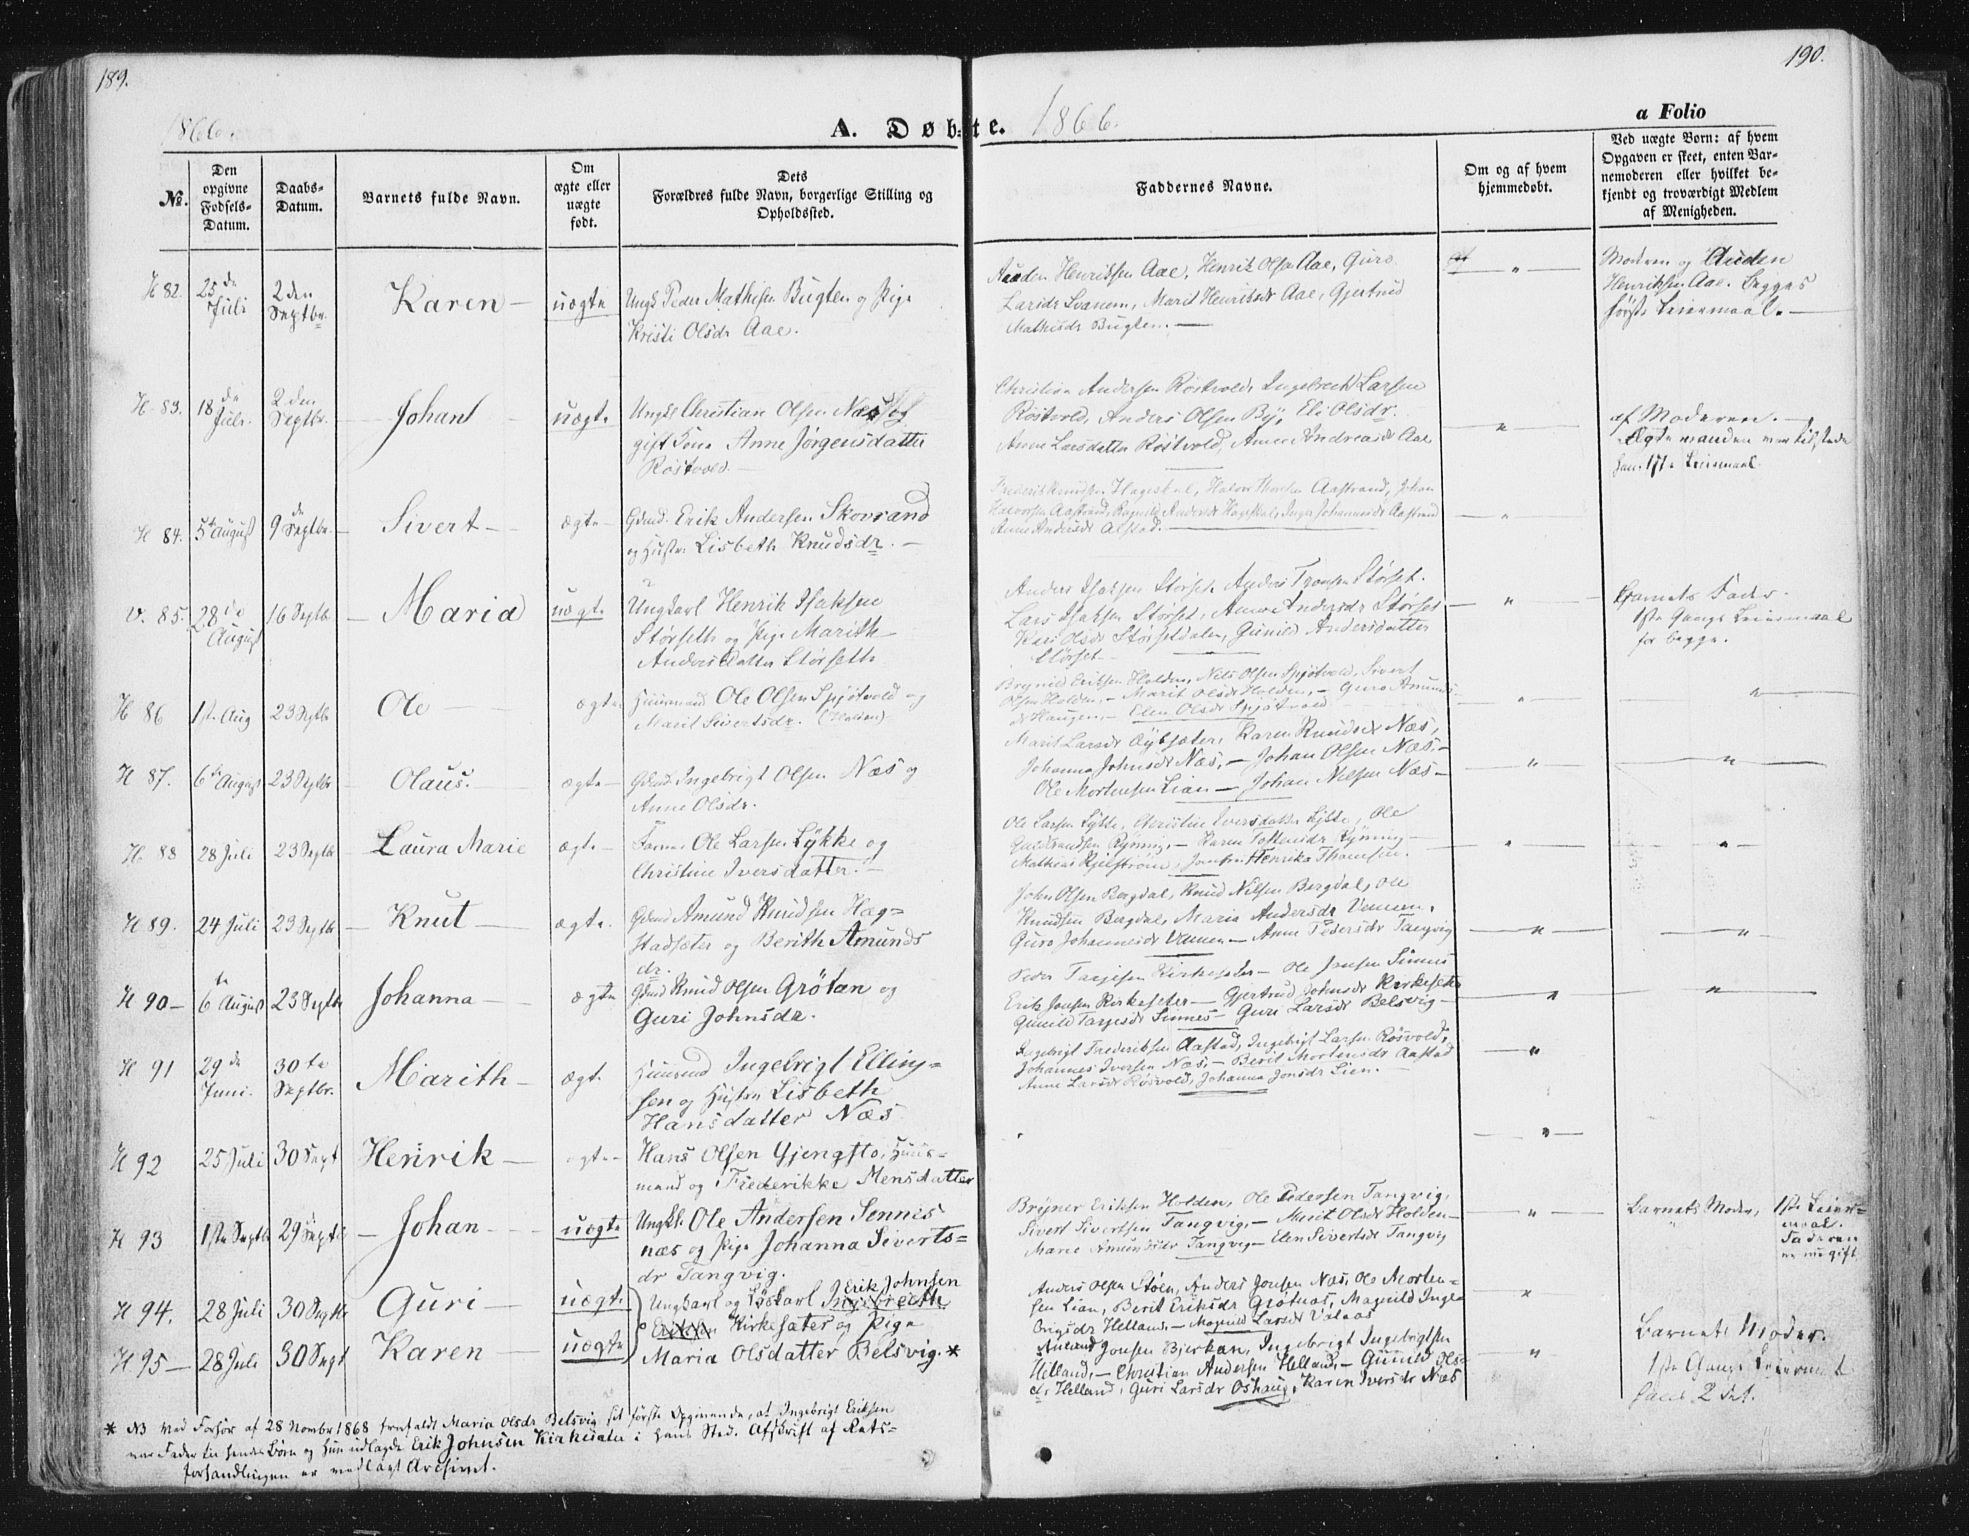 189.
1866.
A. Døbte.
1866.
190.
a Folio
No.
Den opgivne Fødsels-Datum.
Daabs-Datum.
Barnets fulde Navn.
Om ægte eller uægte født.
Dets Forældres fulde Navn, borgerlige Stilling og Opholdssted.
Faddernes Navne.
Om og af hvem hjemmedøbt.
Ved uægte Børn: af hvem Opgaven er skeet, enten Barnemoderen eller hvilket bekjendt og troværdigt Medlem af Menigheden.
H 82. 25de Juli 2den Septbr. Karen uægte
Ungk Peder Mathisen Bugten og Pige
Kristi Olsdr Aae.
Auden Henriksen Aae, Henrik Olsen Aae, Guro
Larsdr Svanem, Marit Henriksdr Aae, Gjertrud
Mathisdr Bugten.
Moderen og Auden
Henriksen Aae. Begges
første Leiermaal.
H 83. 18de Juli 2den Septbr. Johan uægte
Ungk. Christian Olsen Næs og
gift Kone Anne Jørgensdatter
Røstvold.
Christian Andersen Røstvold, Ingebrecht Larsen
Røstvold, Anders Olsen By, Eli Olsdr.
Anne Larsdatter Røstvold, Anne Andreasdr Aae
af Moderen.
Ægtemanden var tilstede
hans 1ste Leiermaal.
H 84. 5te August 9de Septbr. Sivert ægte
Gdmd. Erik Andersen Skovrand
og Hustr. Lisbeth Knudsdr.
Frederik Knudsen Hageskal, Halvor Thorsen Aastrand, Johan
Halvorsen Aastrand, Ragnild Andersdr Hageskal, Inger Johannesdr Aastrand
Anne Andersdr Alstad.
V. 85. 28de August 16 Septbr Maria uægte
Ungkarl Henrik Isaksen
Størseth og Pige Marith
Andersdatter Størseth
Anders Isaksen Størset, Anders Tronsen Størset.
Lars Isaksen Størset, Anne Andersdr Størset
Kari Olsdr Størsetdalen, Gunild Andersdatter
Størset
Barnets Fader.
1ste Gangs Leiermaal
for begge.
H 86 1ste Aug 23 Septbr Ole ægte
Huusmand Ole Olsen Spjøtvold og
Marit Sivertsdr. (Holden)
Brynild Eriksen Holden, Nils Olsen Spjøtvold, Sivert
Olsen Holden, Marit Olsdr Holden, Guro Amunds-
dr Haugen, Elen Olsdr Spjøtvold
H 87. 6te August 23 Septbr Olaus. ægte
Gdmd Ingebrigt Olsen Næs og
Anne Olsdr.
Marit Larsdr Oybsæter, Karen Knudsdr Næs,
Johanna Johnsdr Næs, Johan Olsen Næs,
Ole Mortensen Lian, Johan Nilsen Næs
H. 88 28 Juli 23 Septbr Laura Marie ægte
Ole Larsen Lykke og
Christine Iversdatter.
Ole Larsen Lykke, Christine Iversdatter Lykke, Ole
Guldbrandsen Rønning, Karen Rønning
Mathias Kjelstrøm, Henrika Thomsen.
H 89. 24 Juli 23 Septbr Knut ægte.
Gdmd Amund Knudsen Hæg-
stadsæter og Berith Amunds
dr.
John Olsen Bergdal, Knud Nilsen Bergdal, Ole
Knudsen Bergdal, Maria Andersdr Vennen,
Guro Johannesdr Vennen, Anne Pedersdr Tangvig
H 90 6te August 23 Septbr Johanna ægte
Gdmd Knud Olsen Grøtan og
Guri Johnsdr.
Peder Tarjesen Kirkesæter, Ole Jonsen Sinnes
Erik Jonsen Kirkesæter, Gjertrud Johnsdr Kirkesæter
Gunild Tarjesdr Sinnes, Guri Larsdr Belsvig
H 91 29de Juni. 30te Septbr. Marith ægt.
Huusmd Ingebrigt Elling-
sen og Hustru Lisbeth
Hansdatter Næs
Ingebrigt Frederiksen Aastad, Ingebrigt Larsen Røsvold,
Johannes Iversen Næs, Berit Mortensdr Aastad
Anne Larsdr Røsvold, Johanna Jonsdr Lien.
H 92 25 Juli 30 Sept Henrik ægte
Hans Olsen Gjengsto, Huus-
mand og Frederikke Mensdatter
H 93 1ste Septbr 29 Septbr Johan uægte
Ungkl. Ole Andersen Sennis
næs og Pige Johanna Siverts-
dr Tangvig.
Brynier Eriksen Holden, Ole Pedersen Tangvig,
Sivert Sivertsen Tangvig, Marit Olsdr Holden
Marie Amundsdr Tangvig, Elen Sivertsdr Tangvig
Barnets Moder, 1ste Leier-
maal.
Faderen
er ugift
H 94. 28 Juli 30 Septbr Guri uægte
H 95 28 Juli 30 Sept Karen uægte
Ungkarl og Løskarl Ingebrecth Erik Johnsen
Eriksen Kirkesæter og Pige
Maria Olsdatter Belsvig. *
Anders Olsen Støen, Anders Jonsen Næs, Ole Morten-
sen Lian, Berit Eriksdr Grøtnæs, Magnild Inge
brigtsdr Helland, Magnild Larsdr Valaas
Amund Jonsen Bjerkan, Ingebrigt Ingebrigtsen
Helland, Christian Andersen Helland, Gunild Ols-
dr Helland, Guri Larsdr Oshaug, Karen Iversdr Næs
Barnets Moder.
1ste Gangs Leiermaal
hans 2det.
* NB Ved Forhør af 28 Novbr 1868 frafaldt Maria Olsdr Belsvig sit første Opgivende, at Ingebrigt Eriksen
var Fader til hendes Børn og hun udlagde Erik Johnsen Kirkesæter i hans Sted. Afskrift af Rets-
forhandlingen er vedlagt Archivet.